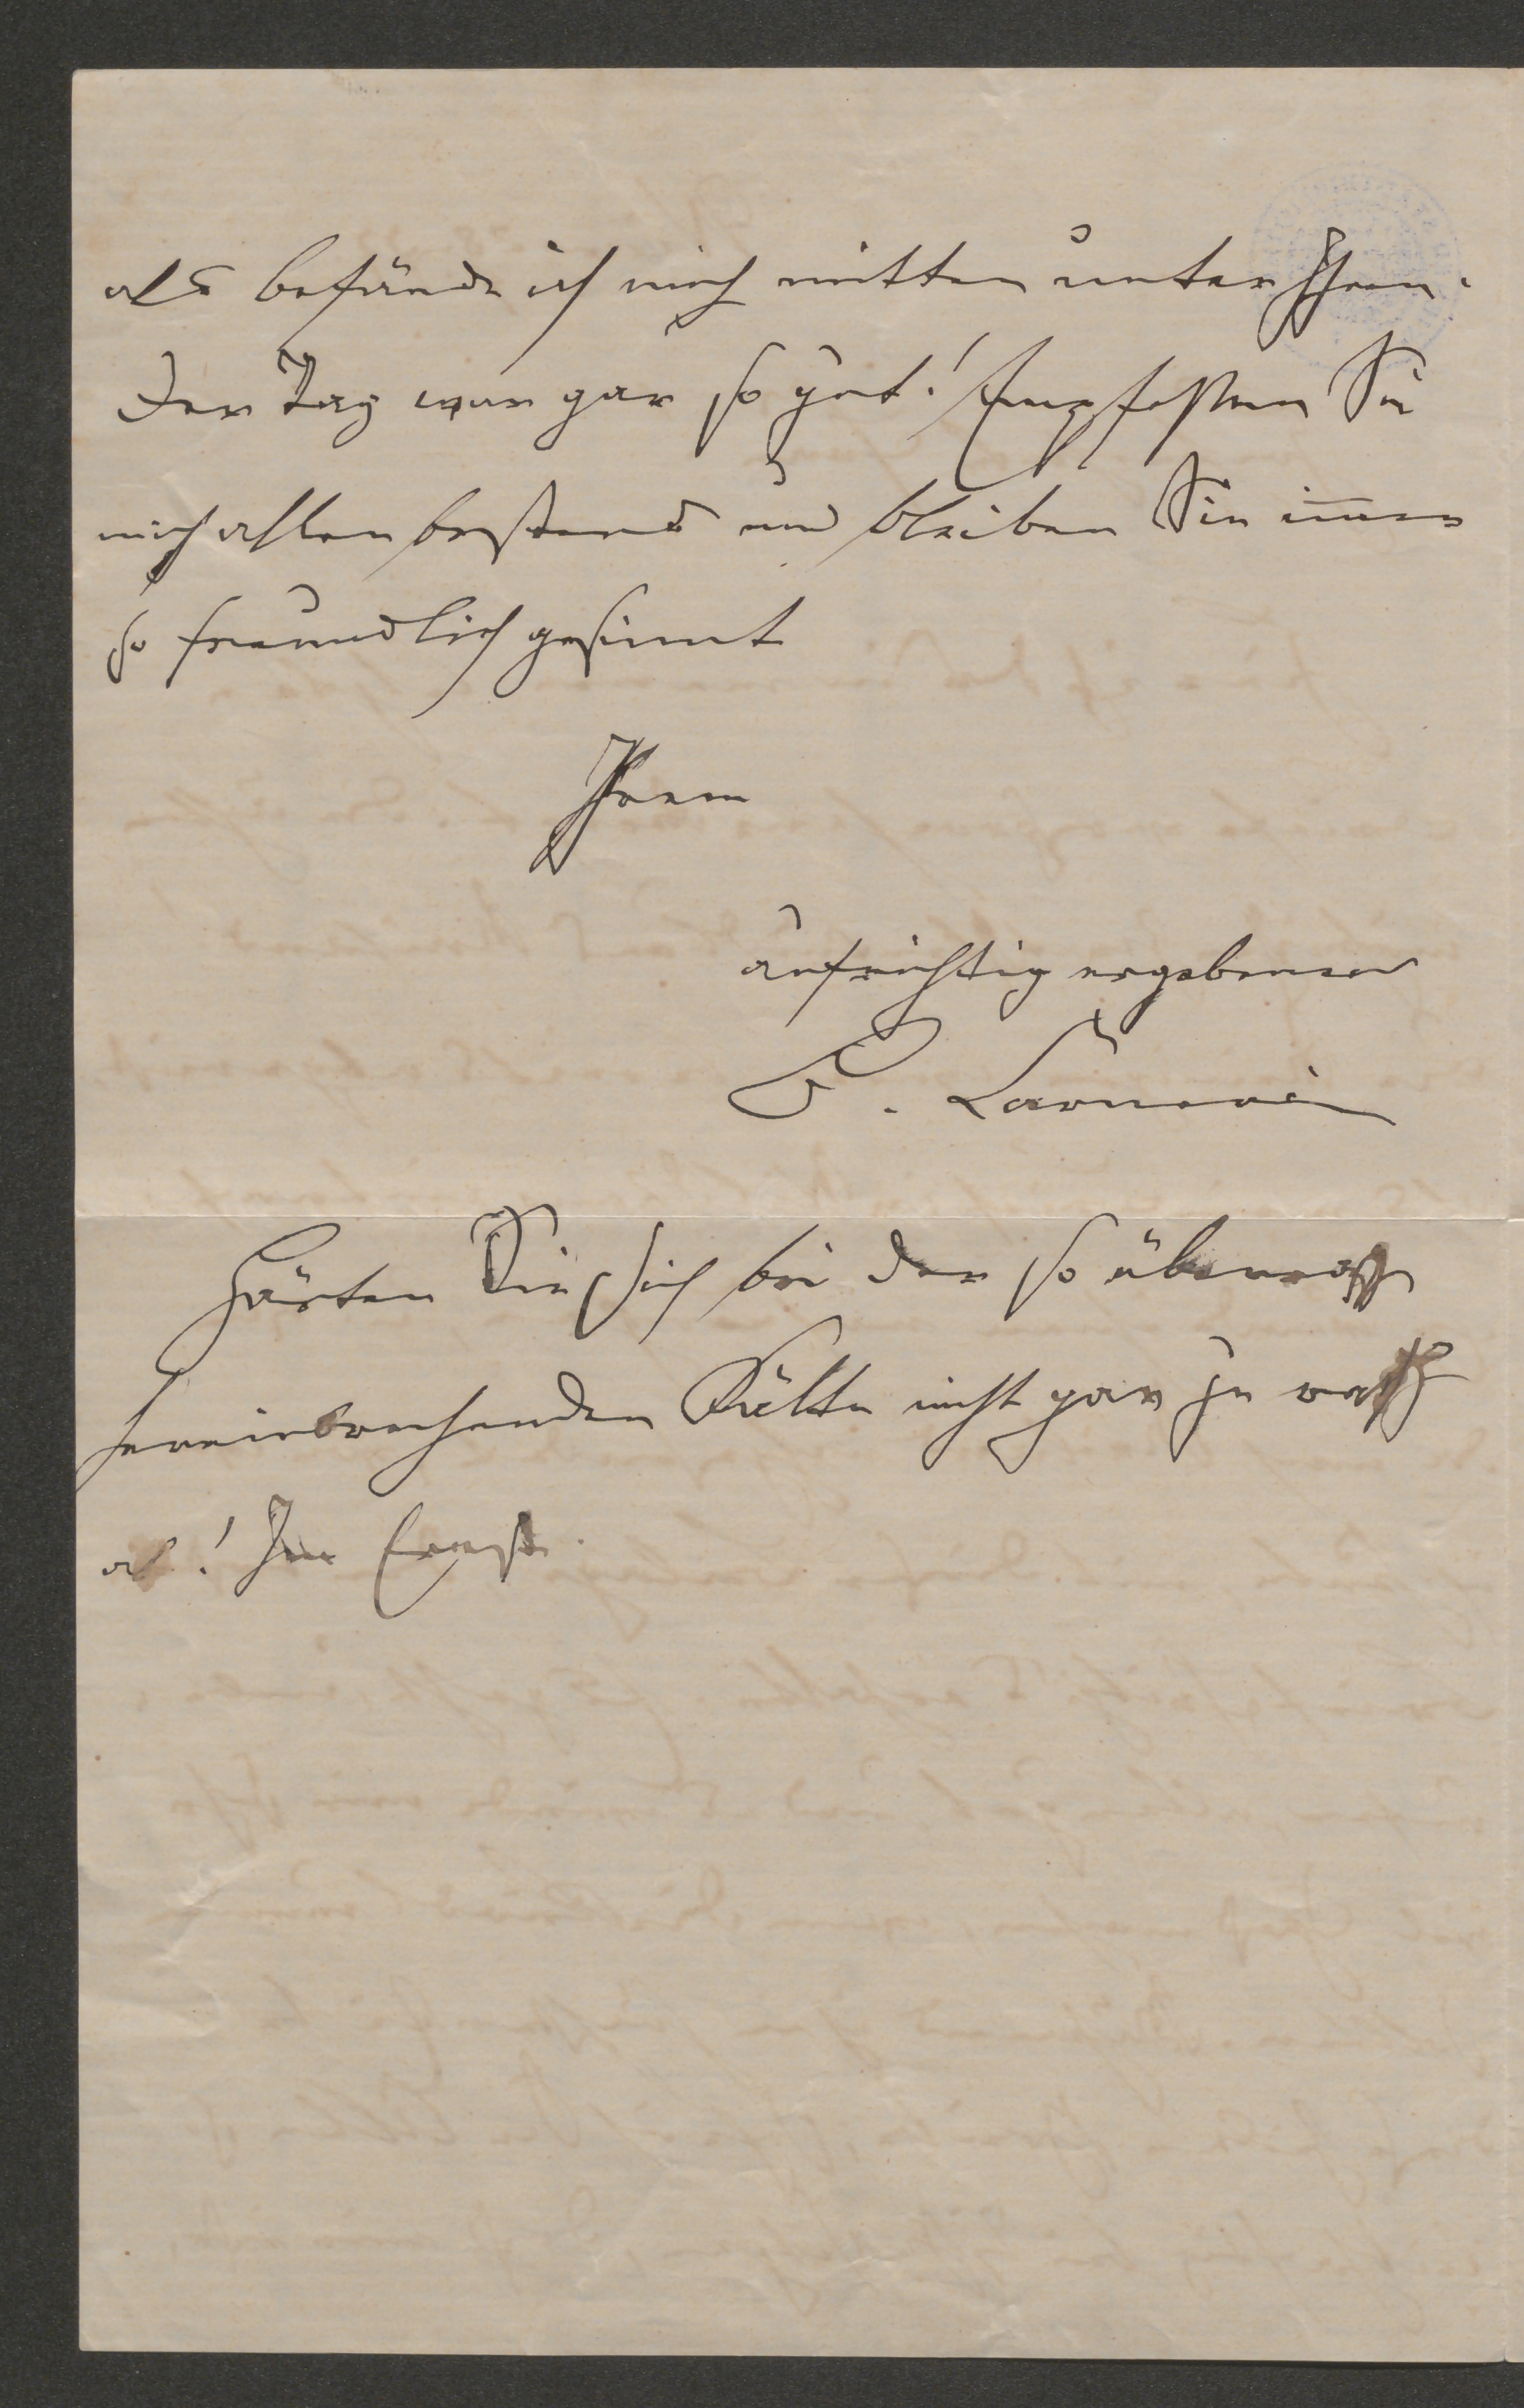 als befände ich mich mitten unter Ihnen.
Der Tag war gar so gut! Empfehlen Sie
mich allen bestens und bleiben Sie im̅er
so freundlich gesinnt
Ihrem
aufrichtig ergebenen
B. Carneri
Härten Sie sich bei der so überrasch
hereinbrechenden Kälte nicht gar zu rasch
ab! Im Ernst.